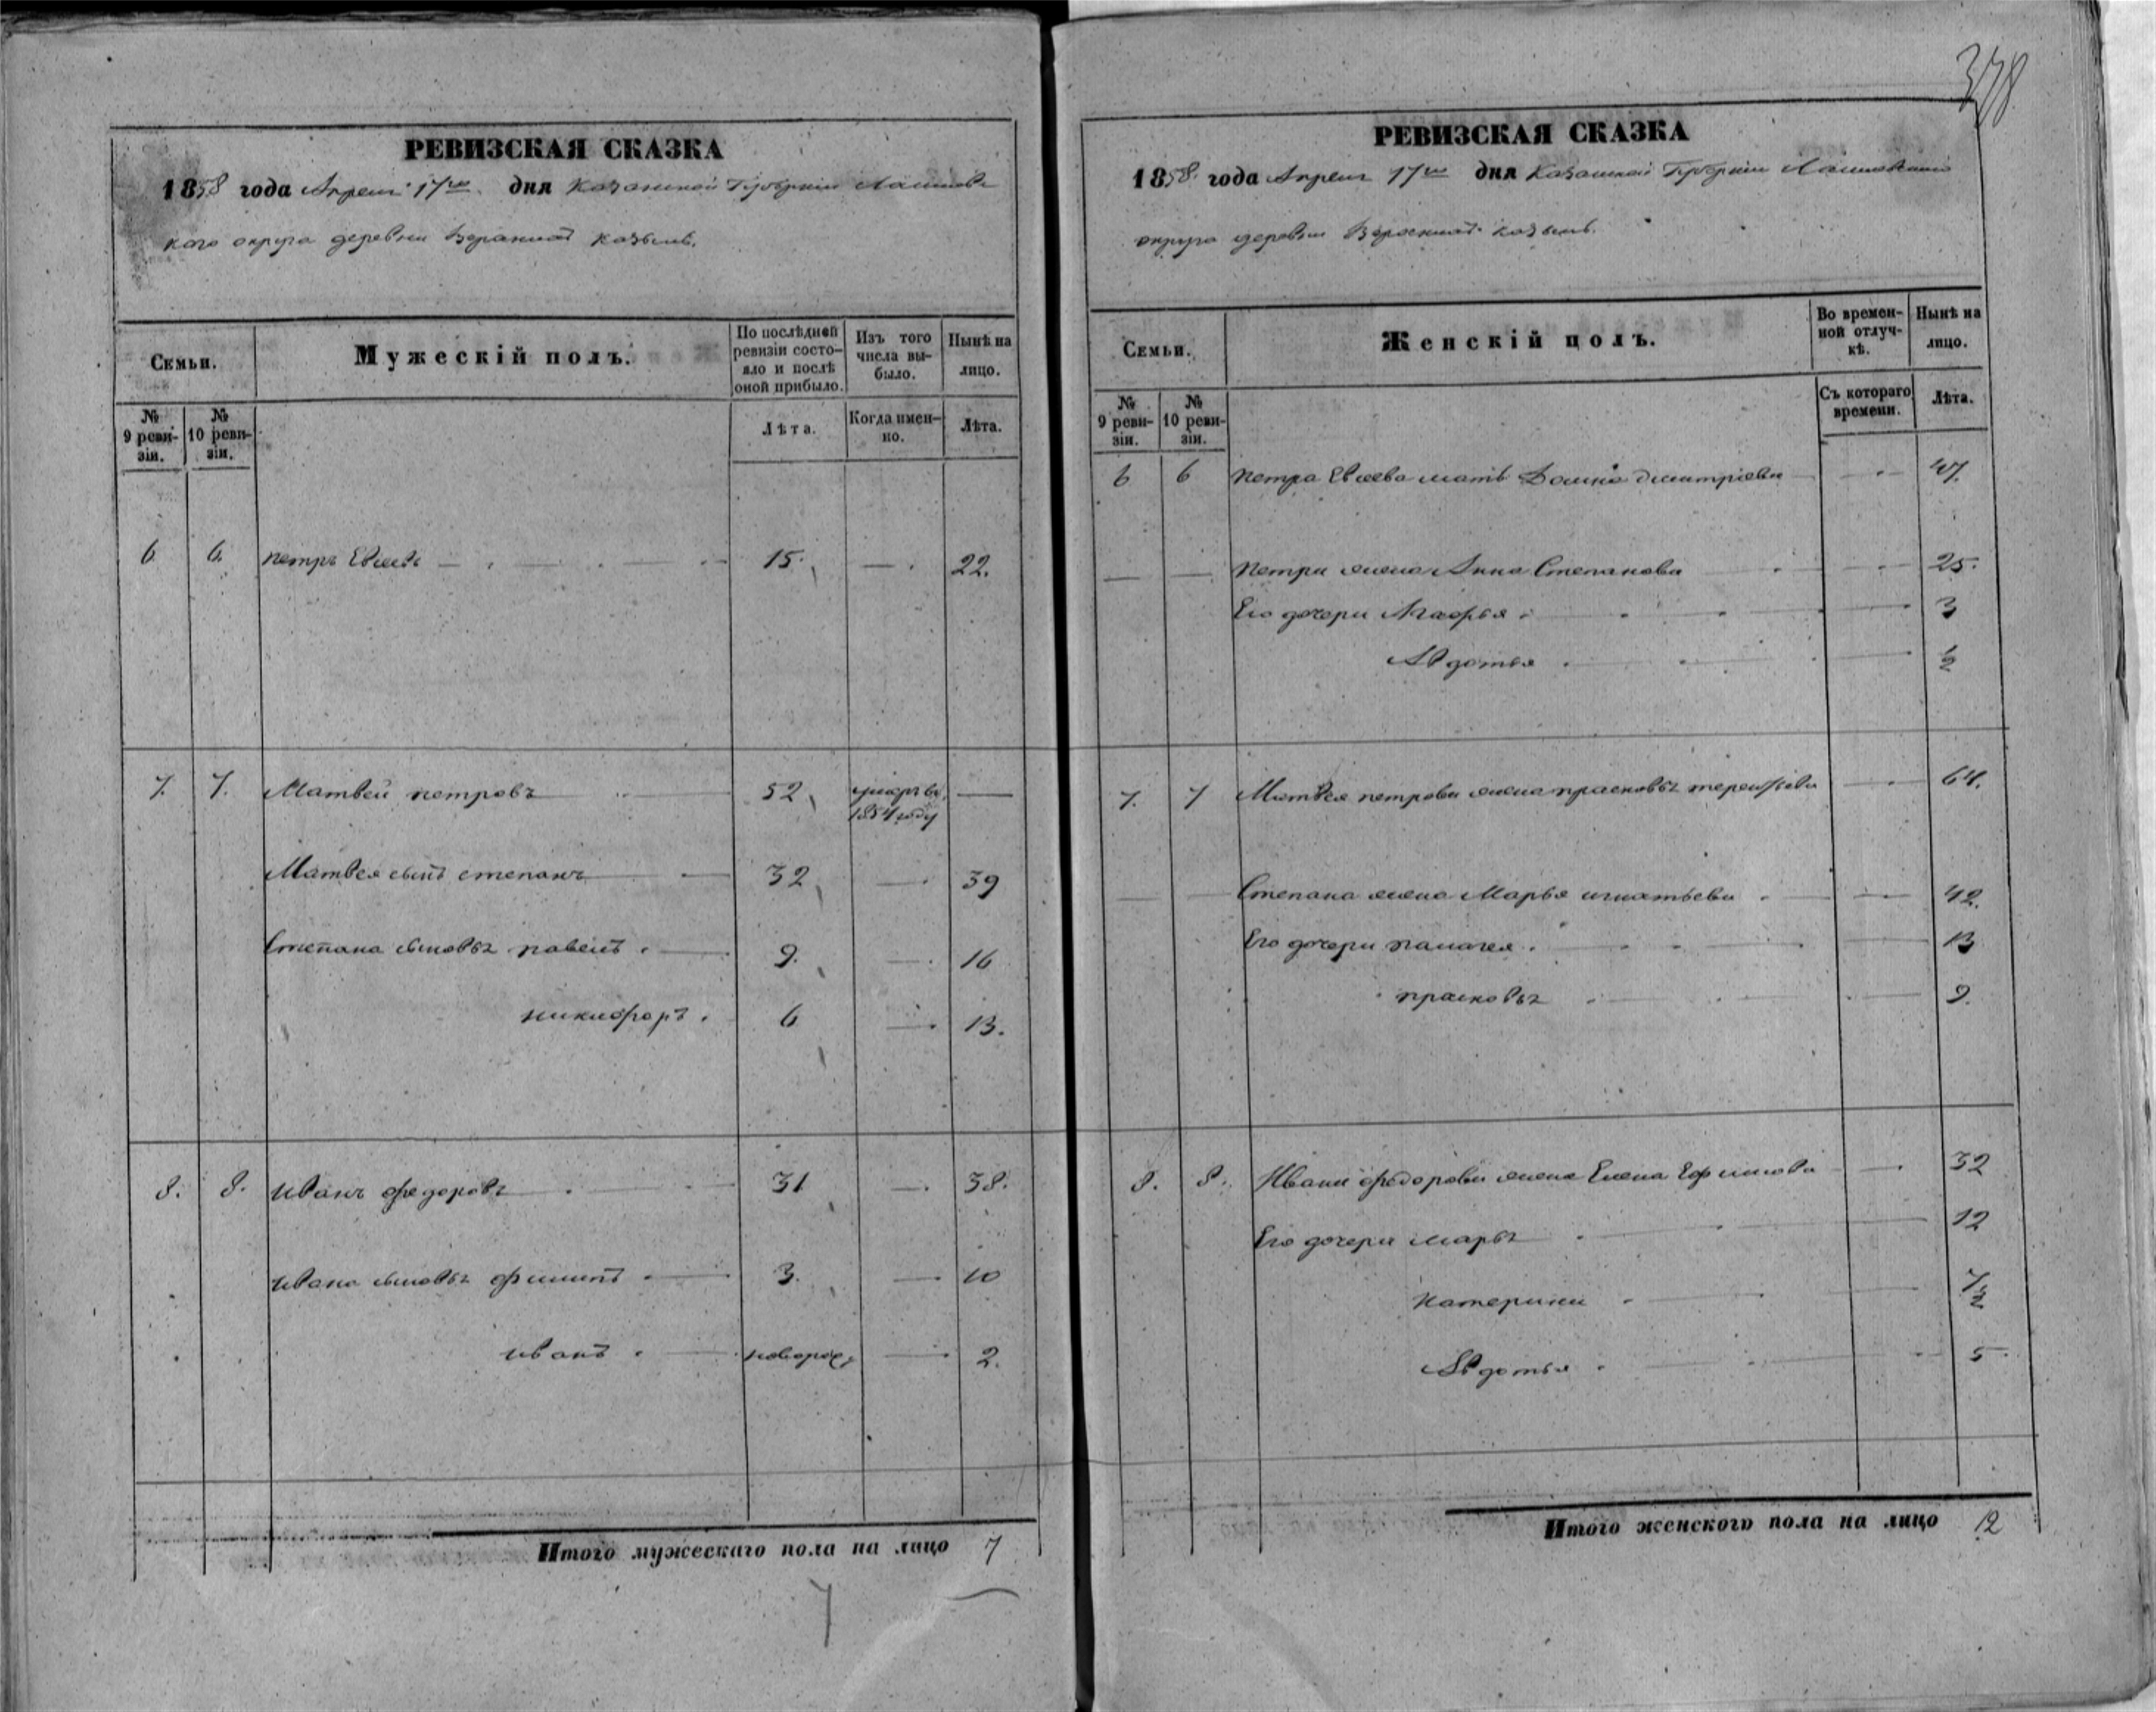 378
РЕВИЗСКАЯ СКАЗКА
1858 года Апреля 17го дня Казанской Губерніи Лаишевс
каго округа деревни Козыли.
Семьи.
Мужескій полъ.
По послѣдней ревизіи состояло и послѣ оной прибыло.
Изъ того числа выбыло.
Нынѣ на лицо.
№ 9 ревизіи.
№ 10 ревизіи.
Лѣта.
Когда именно.
Лѣта.
6 6. петръ 15. — 22.
7. 7. Матвей петровъ 52 умеръ въ 1854 году —
Матвея сынъ степанъ 32 — 39
Степана сыновья павелъ 9. — 16
никифоръ 6 — 13.
8. 8. иванъ федоровъ 31 — 38.
ивана сыновья филипъ 3. — 10
иванъ новорож. — 2.
Итого мужескаго пола на лицо 7
7
РЕВИЗСКАЯ СКАЗКА
1858 года Апреля 17го дня Казанской Губерніи Лаишевскаго
округа деревни Козыли.
Семьи.
Женскій полъ.
Во временной отлучкѣ.
Нынѣ на лицо.
№ 9 ревизіи.
№ 10 ревизіи.
Съ котораго времени.
Лѣта.
6 6 петра мать Домна дмитріева — 47.
— — петра жена Анна Степанова — 25.
Его дочери Агафья — 3
Авдотья — ½
7. 7 Матвея петрова жена прасковья — 64.
Степана жена Марья игнатьева — 42.
Его дочери пелагея — 13
прасковья — 9.
8. 8. Ивана федорова жена Елена Ефимова — 32
Его дочери марья — 12
катерина — 7½
Авдотья — 5
Итого женскаго пола на лицо 12